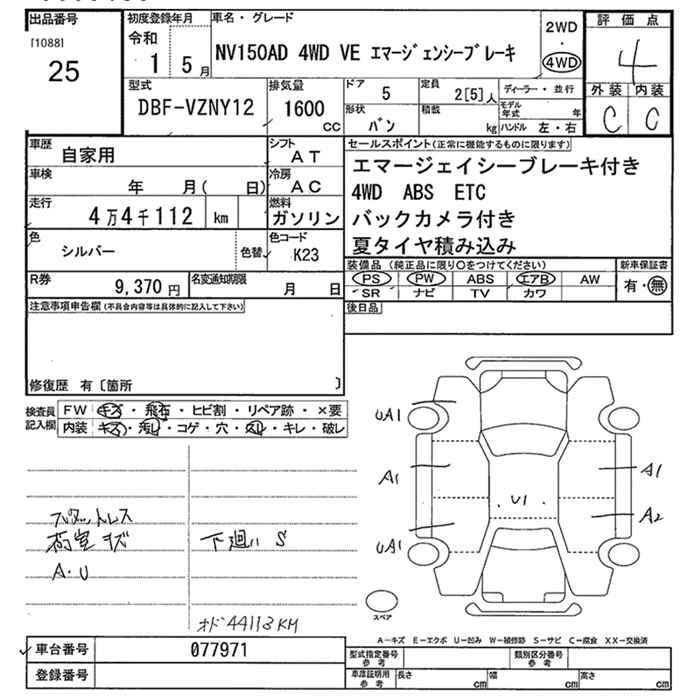 出品番号
[1088]
25
初度登録年月
令和
1 5月
車名・グレード
NV150AD 4WD VE エマージェンシーブレーキ
2WD
・
4WD
評価点
4
外装 内装
C C
型式
DBF-VZNY12
排気量
1600
CC
ドア
5
定員
2[5]人
ディーラー・並行
モデル年式 年
形状
バン
積載
kg
ハンドル 左・右
車歴
自家用
シフト
AT
車検
年 月( 日)
冷房
AC
走行
4万4千112 km
燃料
ガソリン
色
シルバー
色替
色コード
K23
R券
9,370円
名変通知期限
月 日
セールスポイント(正常に機能するものに限ります)
エマージェイシーブレーキ付き
4WD ABS ETC
バックカメラ付き
夏タイヤ積み込み
装備品(純正品に限り○をつけてください)
PS PW ABS エアB AW
SR ナビ TV カワ
新車保証書
有・無
後日品
注意事項申告欄(不具合内容等は具体的に記入して下さい)
修復歴 有〔箇所 〕
検査員記入欄
FW キズ・飛石・ヒビ割・リペア跡・×要
内装 キズ・汚レ・コゲ・穴・スレ・キレ・破レ
UA1
A1
UA1
U1
A1
A2
スペア
荷室キズ
A・U
下廻り S
オド 44113KM
A－キズ E－エクボ U－凹み W－補修跡 S－サビ C－腐食 XX－交換済
車台番号
077971
登録番号
型式指定番号
参考
類別区分番号
参考
車庫証明用
参考
長さ cm
幅 cm
高さ cm